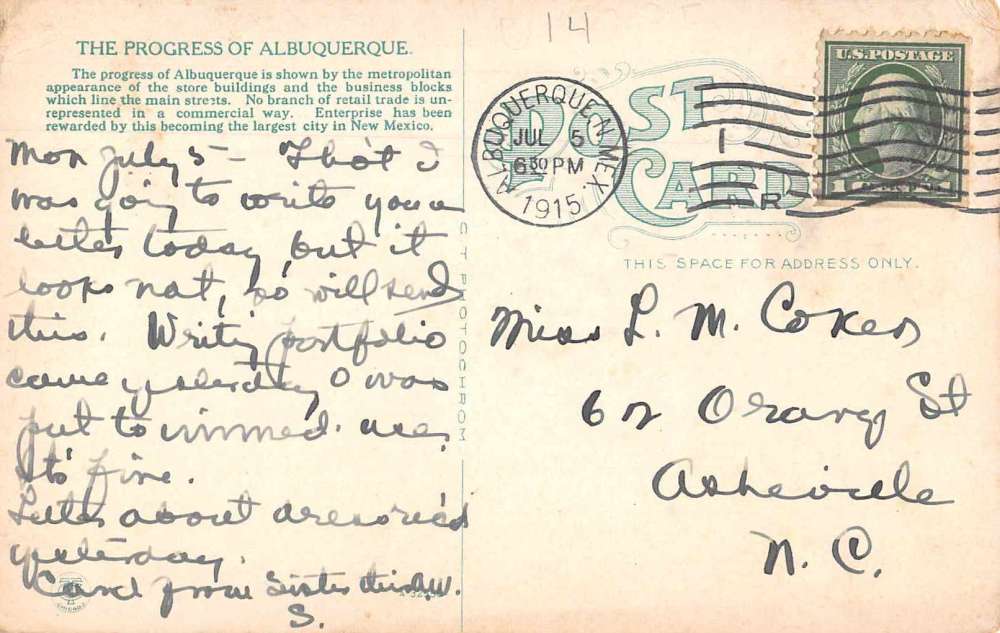 14
THE PROGRESS OF ALBUQUERQUE.
The progress of Albuquerque is shown by the metropolitan
appearance of the store buildings and the business blocks
which line the main streets. No branch of retail trade is un-
represented in a commercial way. Enterprise has been
rewarded by this becoming the largest city in New Mexico.
Mon July 5 - Thot I
was going to write you a
letter today, but it
looks not, so will send
this. Writing portfolio
came yesterday & was
put to immed. use.
Its fine.
Letter about dress rec'd
yesterday.
Card from Sister this A.M.
S.
C T PHOTOCHROM
POST CARD
ALBUQUERQUE, N. MEX.
JUL 5
630 PM
1915
1
U.S. POSTAGE
1 CENT
THIS SPACE FOR ADDRESS ONLY.
Miss L. M. Coker
62 Orange St
Asheville
N. C.